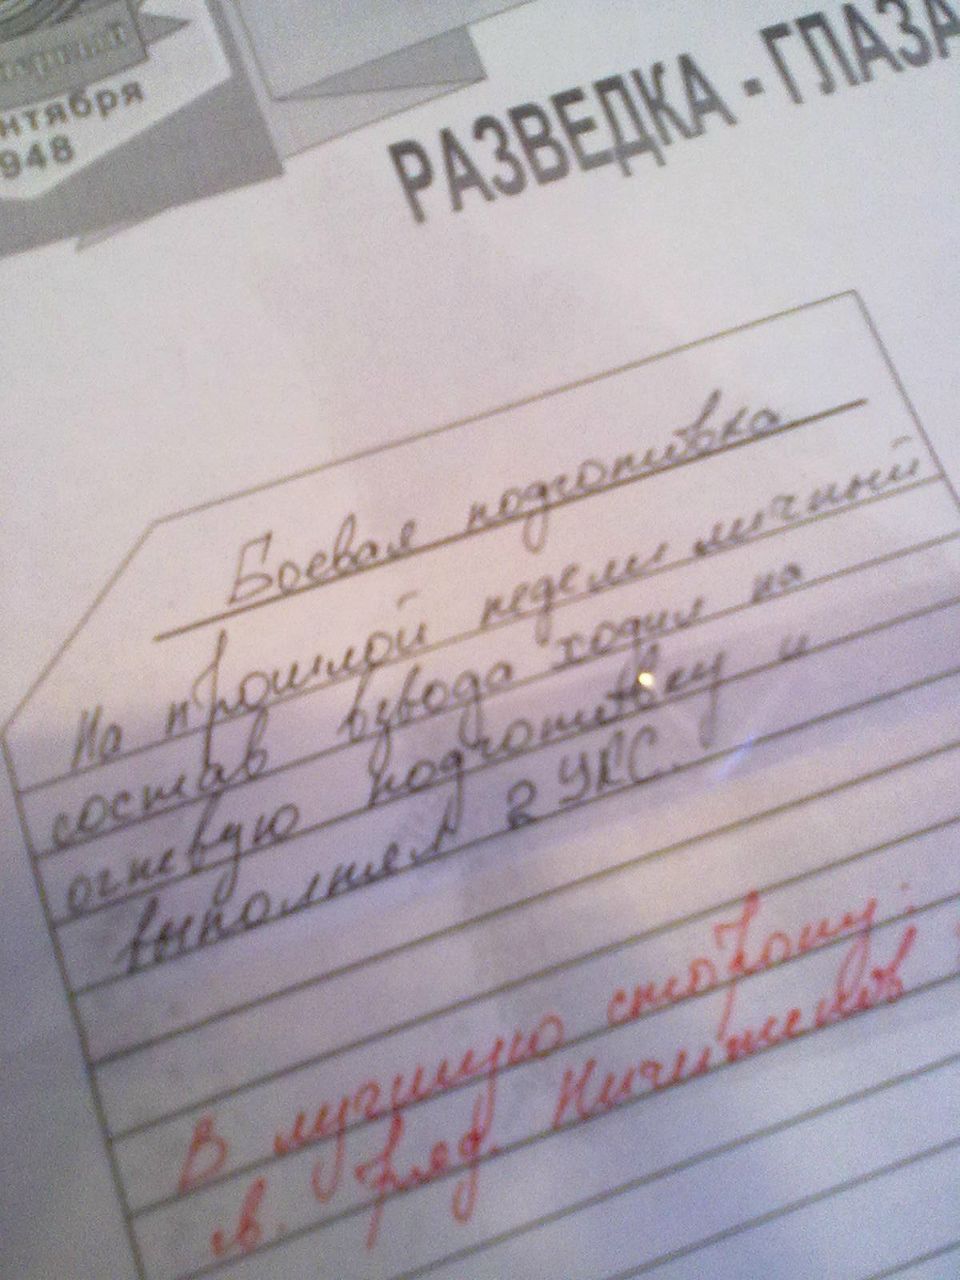 нтября
948
РАЗВЕДКА - ГЛАЗА
Боевая подготовка
На прошлой недели личный
состав взвода ходил на
огневую подготовку и
выполнял 2 УКС.
В лучшую сторону:
ряд.